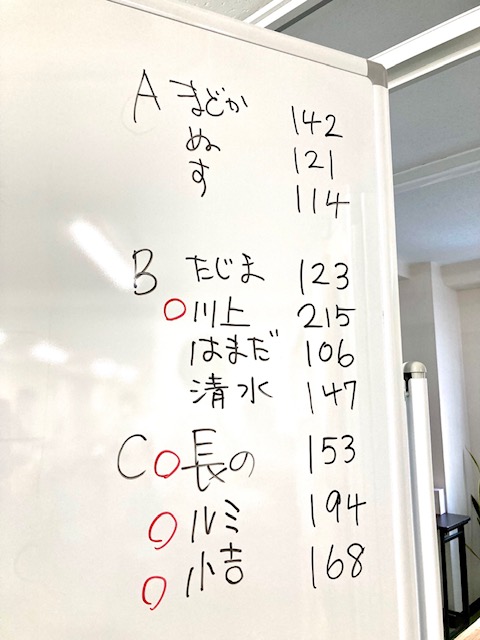 A まどか 142
ぬ 121
す 114
B たじま 123
○ 川上 215
はまだ 106
清水 147
C ○ 長の 153
○ ルミ 194
○ 小吉 168